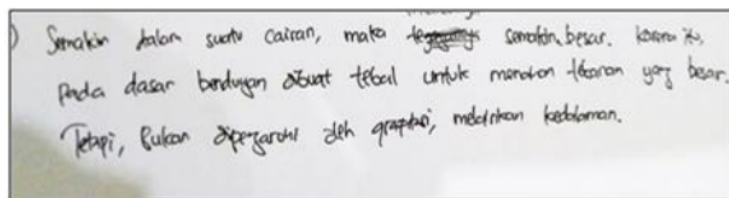 ) Semakin dalam suatu cairan, maka semakin besar. karena itu,
Pada dasar bendungan dibuat tebal untuk menahan tekanan yang besar.
Tetapi, Bukan dipengaruhi oleh grafitasi, melainkan kedalaman.